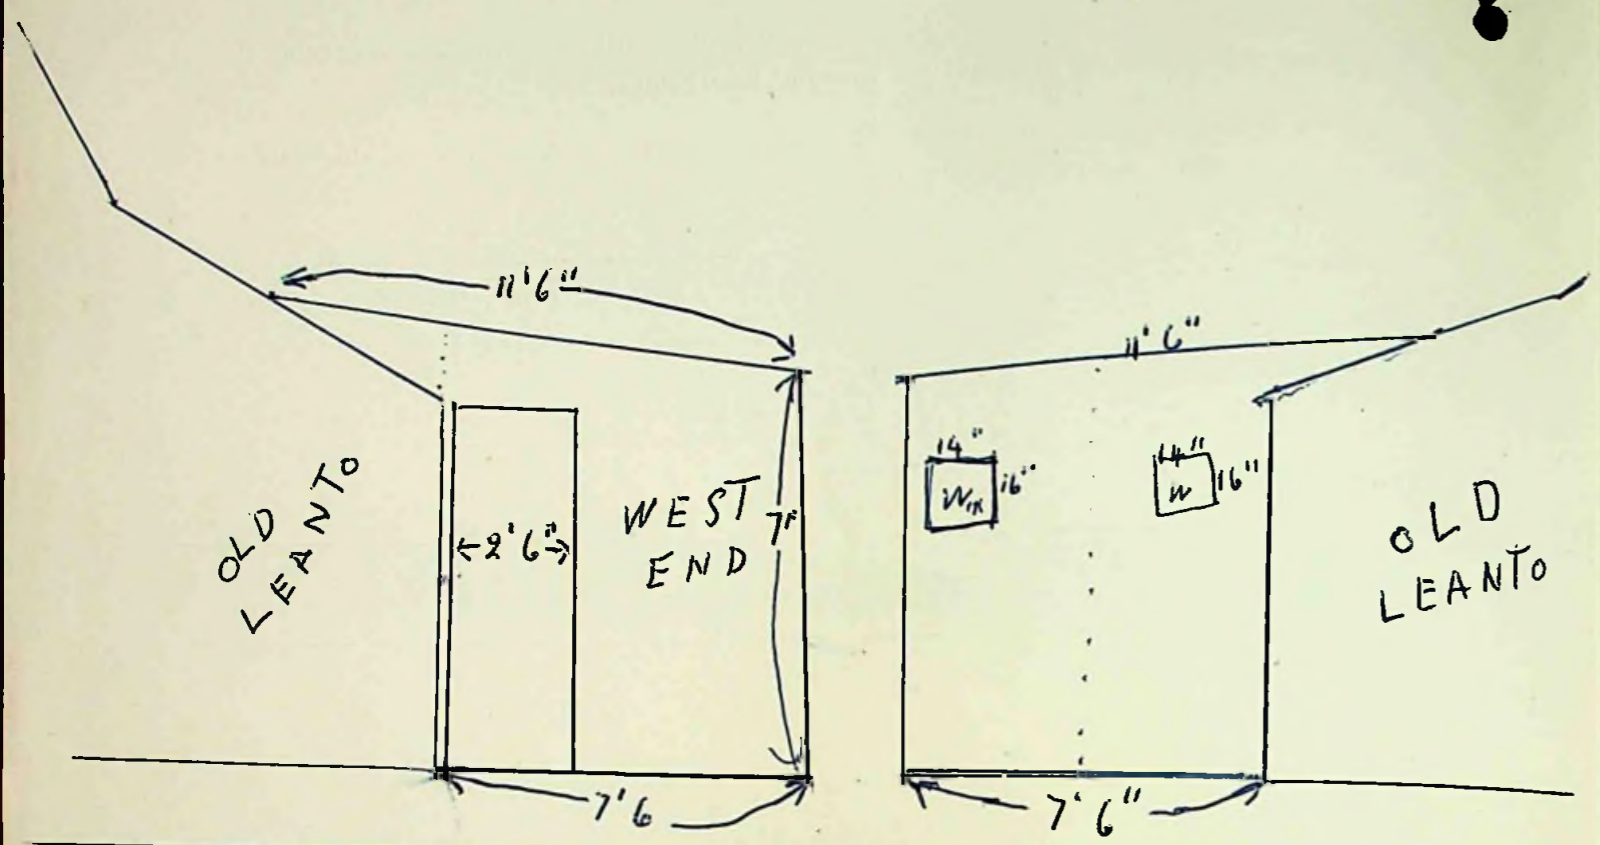 11'6"
OLD
LEANTO
2'6"
WEST
END
7'
7'6
11'6"
14"
16"
14"
W
16"
OLD
LEANTO
7'6"